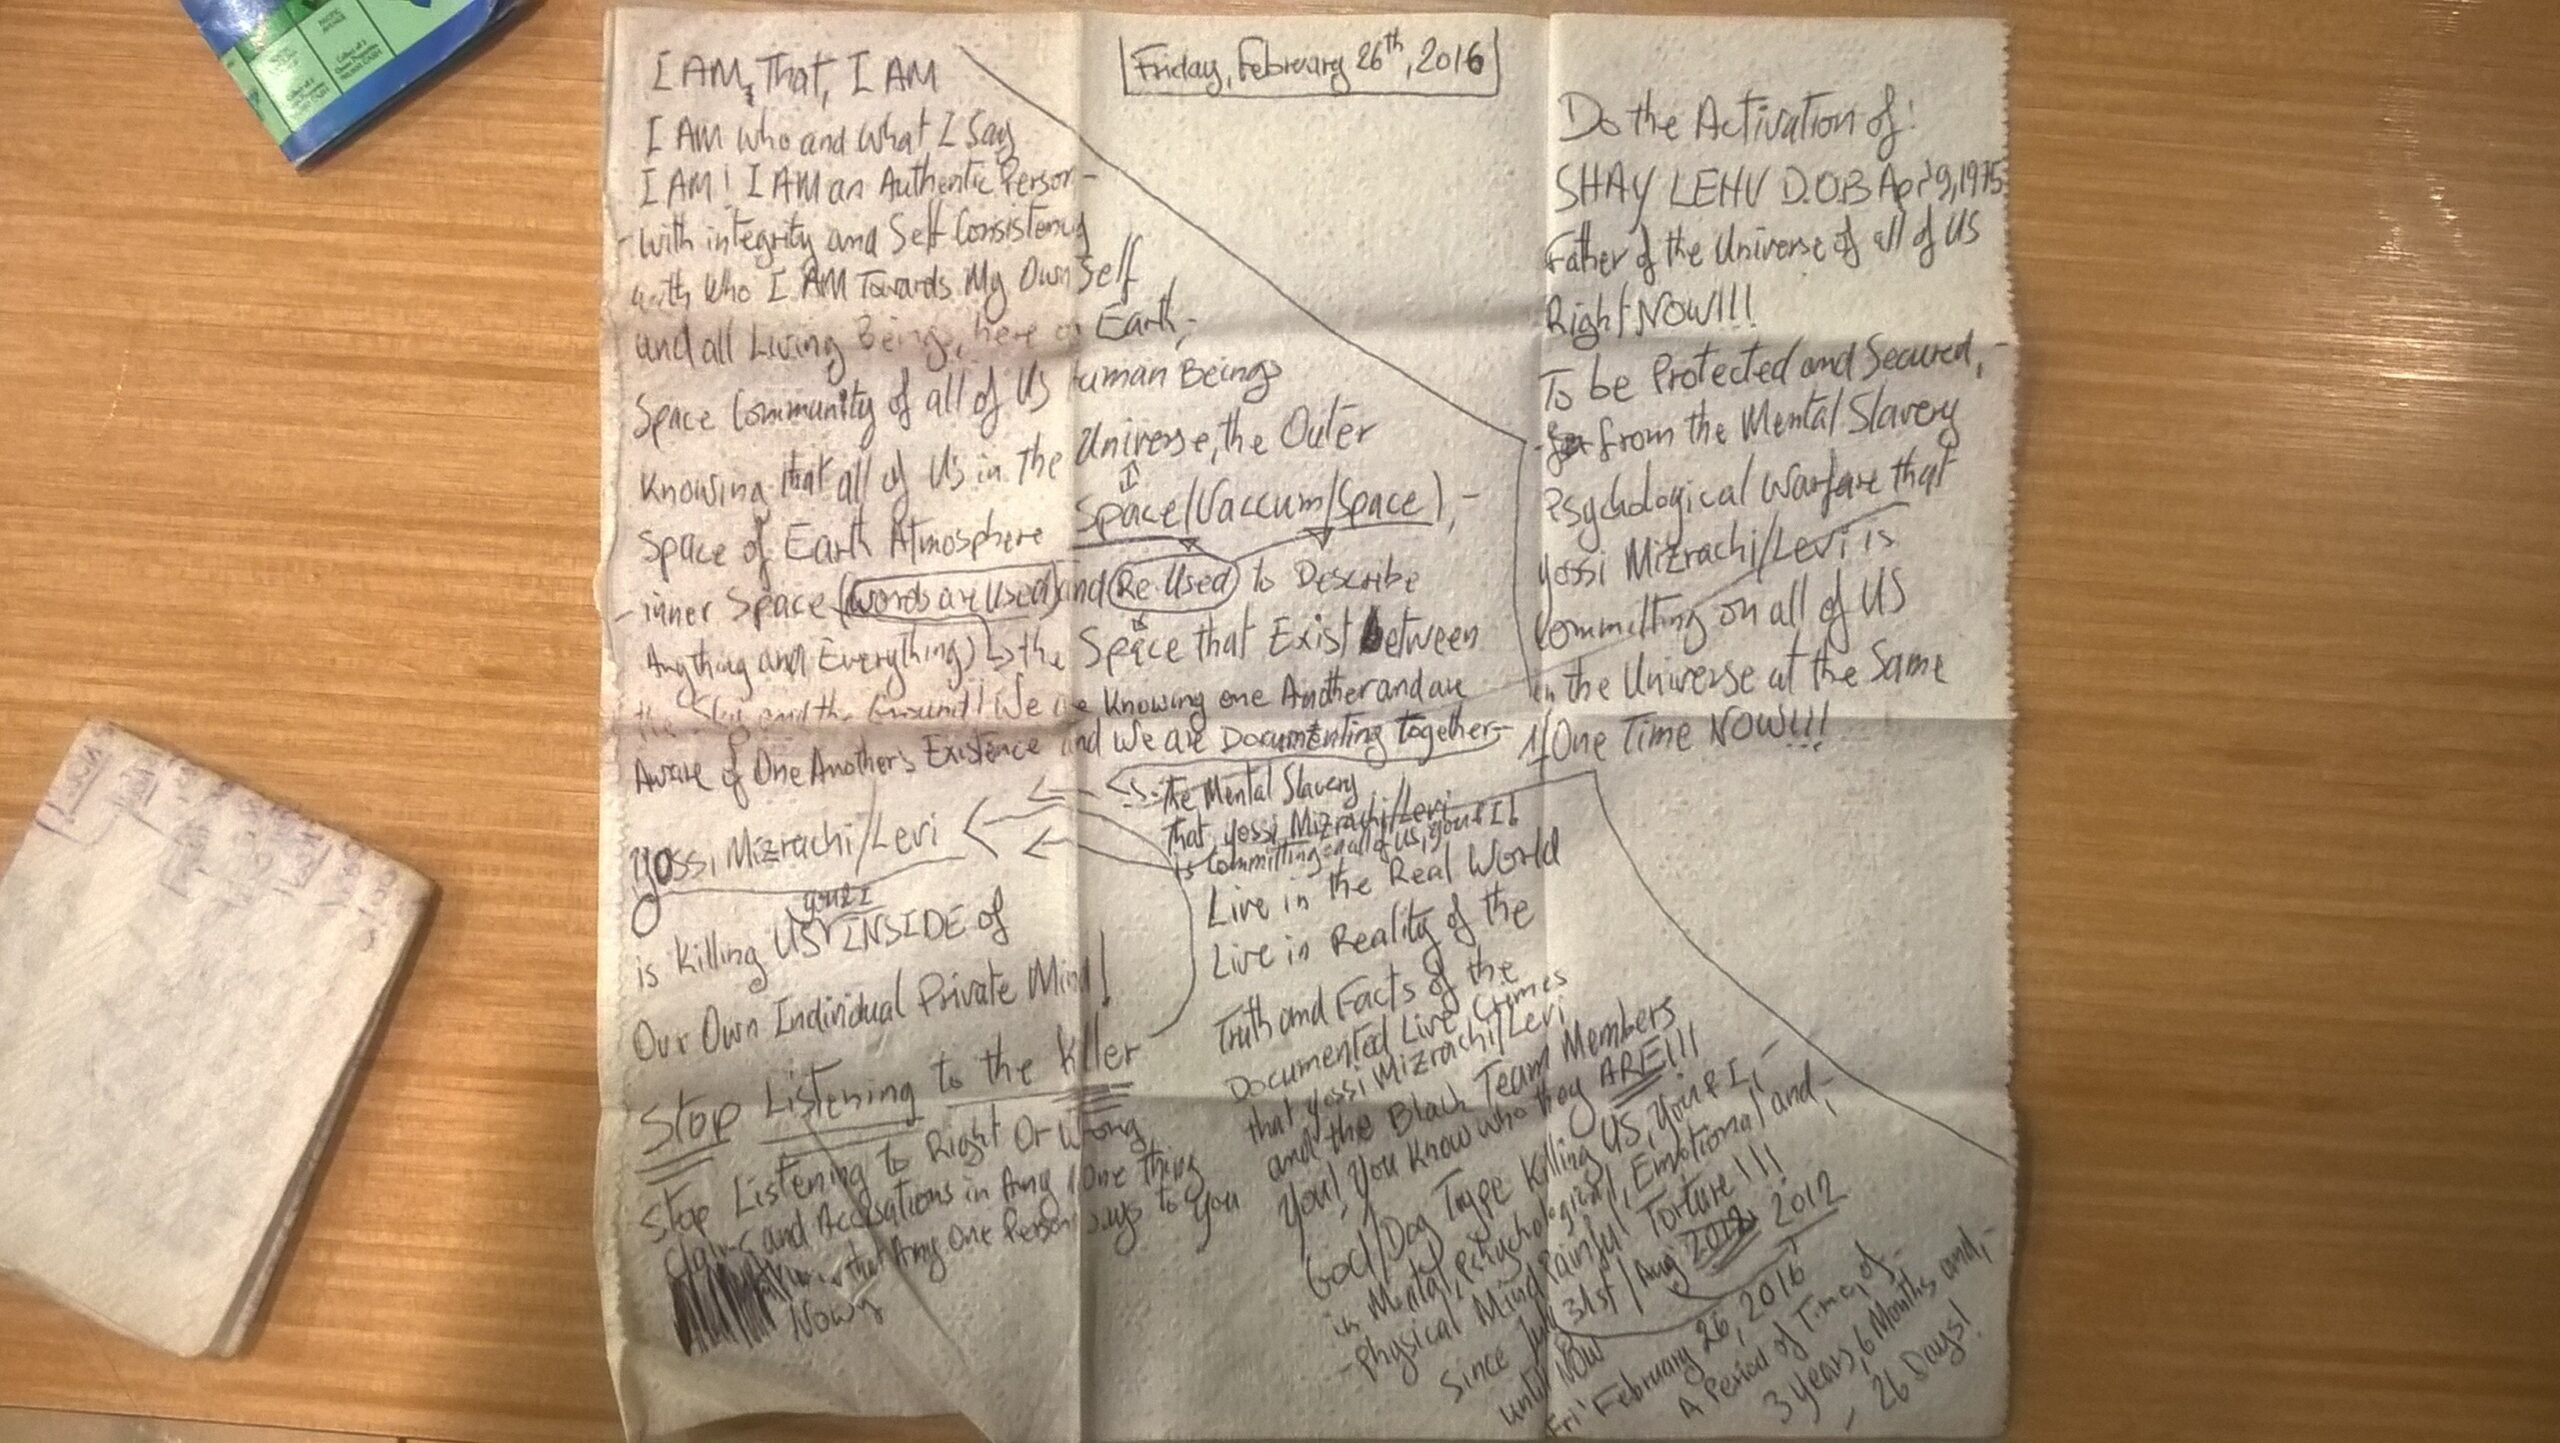 Friday, February 26th, 2016
I AM, That, I AM
I AM who and what I Say
I AM! I AM an Authentic Person-
-with integrity and Self Consistency
with who I AM Towards My Own Self
and all Living Beings, here on Earth,-
Space Community of all of US Human Beings
Knowing that all of Us in the Universe, the Outer
Space of Earth Atmosphere Space/Vaccum/Space),-
-inner Space (words are Used) and Re-Used to Describe
Anything and Everything) the Space that Exist between
the Sky and the Ground! We are Knowing one Another and are
Aware of One Another's Existence and We are Documenting together-
Yossi Mizrachi/Levi
you & I
is Killing US INSIDE of
Our Own Individual Private Mind!
Stop Listening to the Killer
Stop Listening to Right Or Wrong
and Accusations in Any 1 One thing
that Any One Person says to you
Now
the Mental Slavery
that Yossi Mizrachi/Levi
is Committing on all of US, you & I
Live in the Real World
Live in Reality of the
Truth and Facts of the
Documented Live Crimes
that Yossi Mizrachi/Levi
and the Black Team Members
you! You Know who they ARE!!!
God/Dog Type Killing US, you & I,-
in Mental, Psychological, Emotional and,-
-Physical Mind Painful Torture!!!
Since July 31st/Aug 2012 2012
until NOW
Fri' February 26, 2016
A Period of Time, of
3 Years, 6 Months and,-
- 26 Days!
Do the Activation of:
SHAY LEHV D.O.B Apr 9, 1975
Father of the Universe of all of US
Right NOW!!!
To be Protected and Secured,-
from the Mental Slavery
Psychological Warfare that
Yossi Mizrachi/Levi is
Committing on all of US
in the Universe at the Same
1/One Time NOW!!!